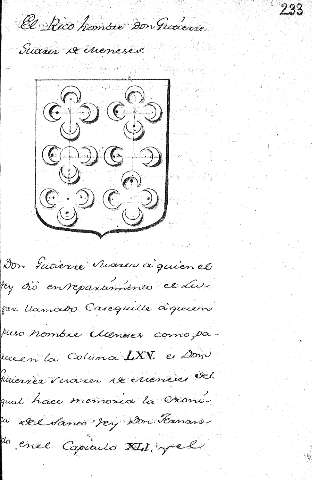 233
El Rico hombre Don Gutierre
Suarez de Meneses.
Don Gutierre Suarez á quien el
Rey dió en repartimiento el Lu-
gar llamado Casequille á quien
puso nombre Meneses como pa-
rece en la Coluna LXV. es Don
Gutierrez Suarez de Meneses del
qual hace memoria la Croni-
ca del Santo Rey Don Fernan-
do en el Capitulo XLI. y el